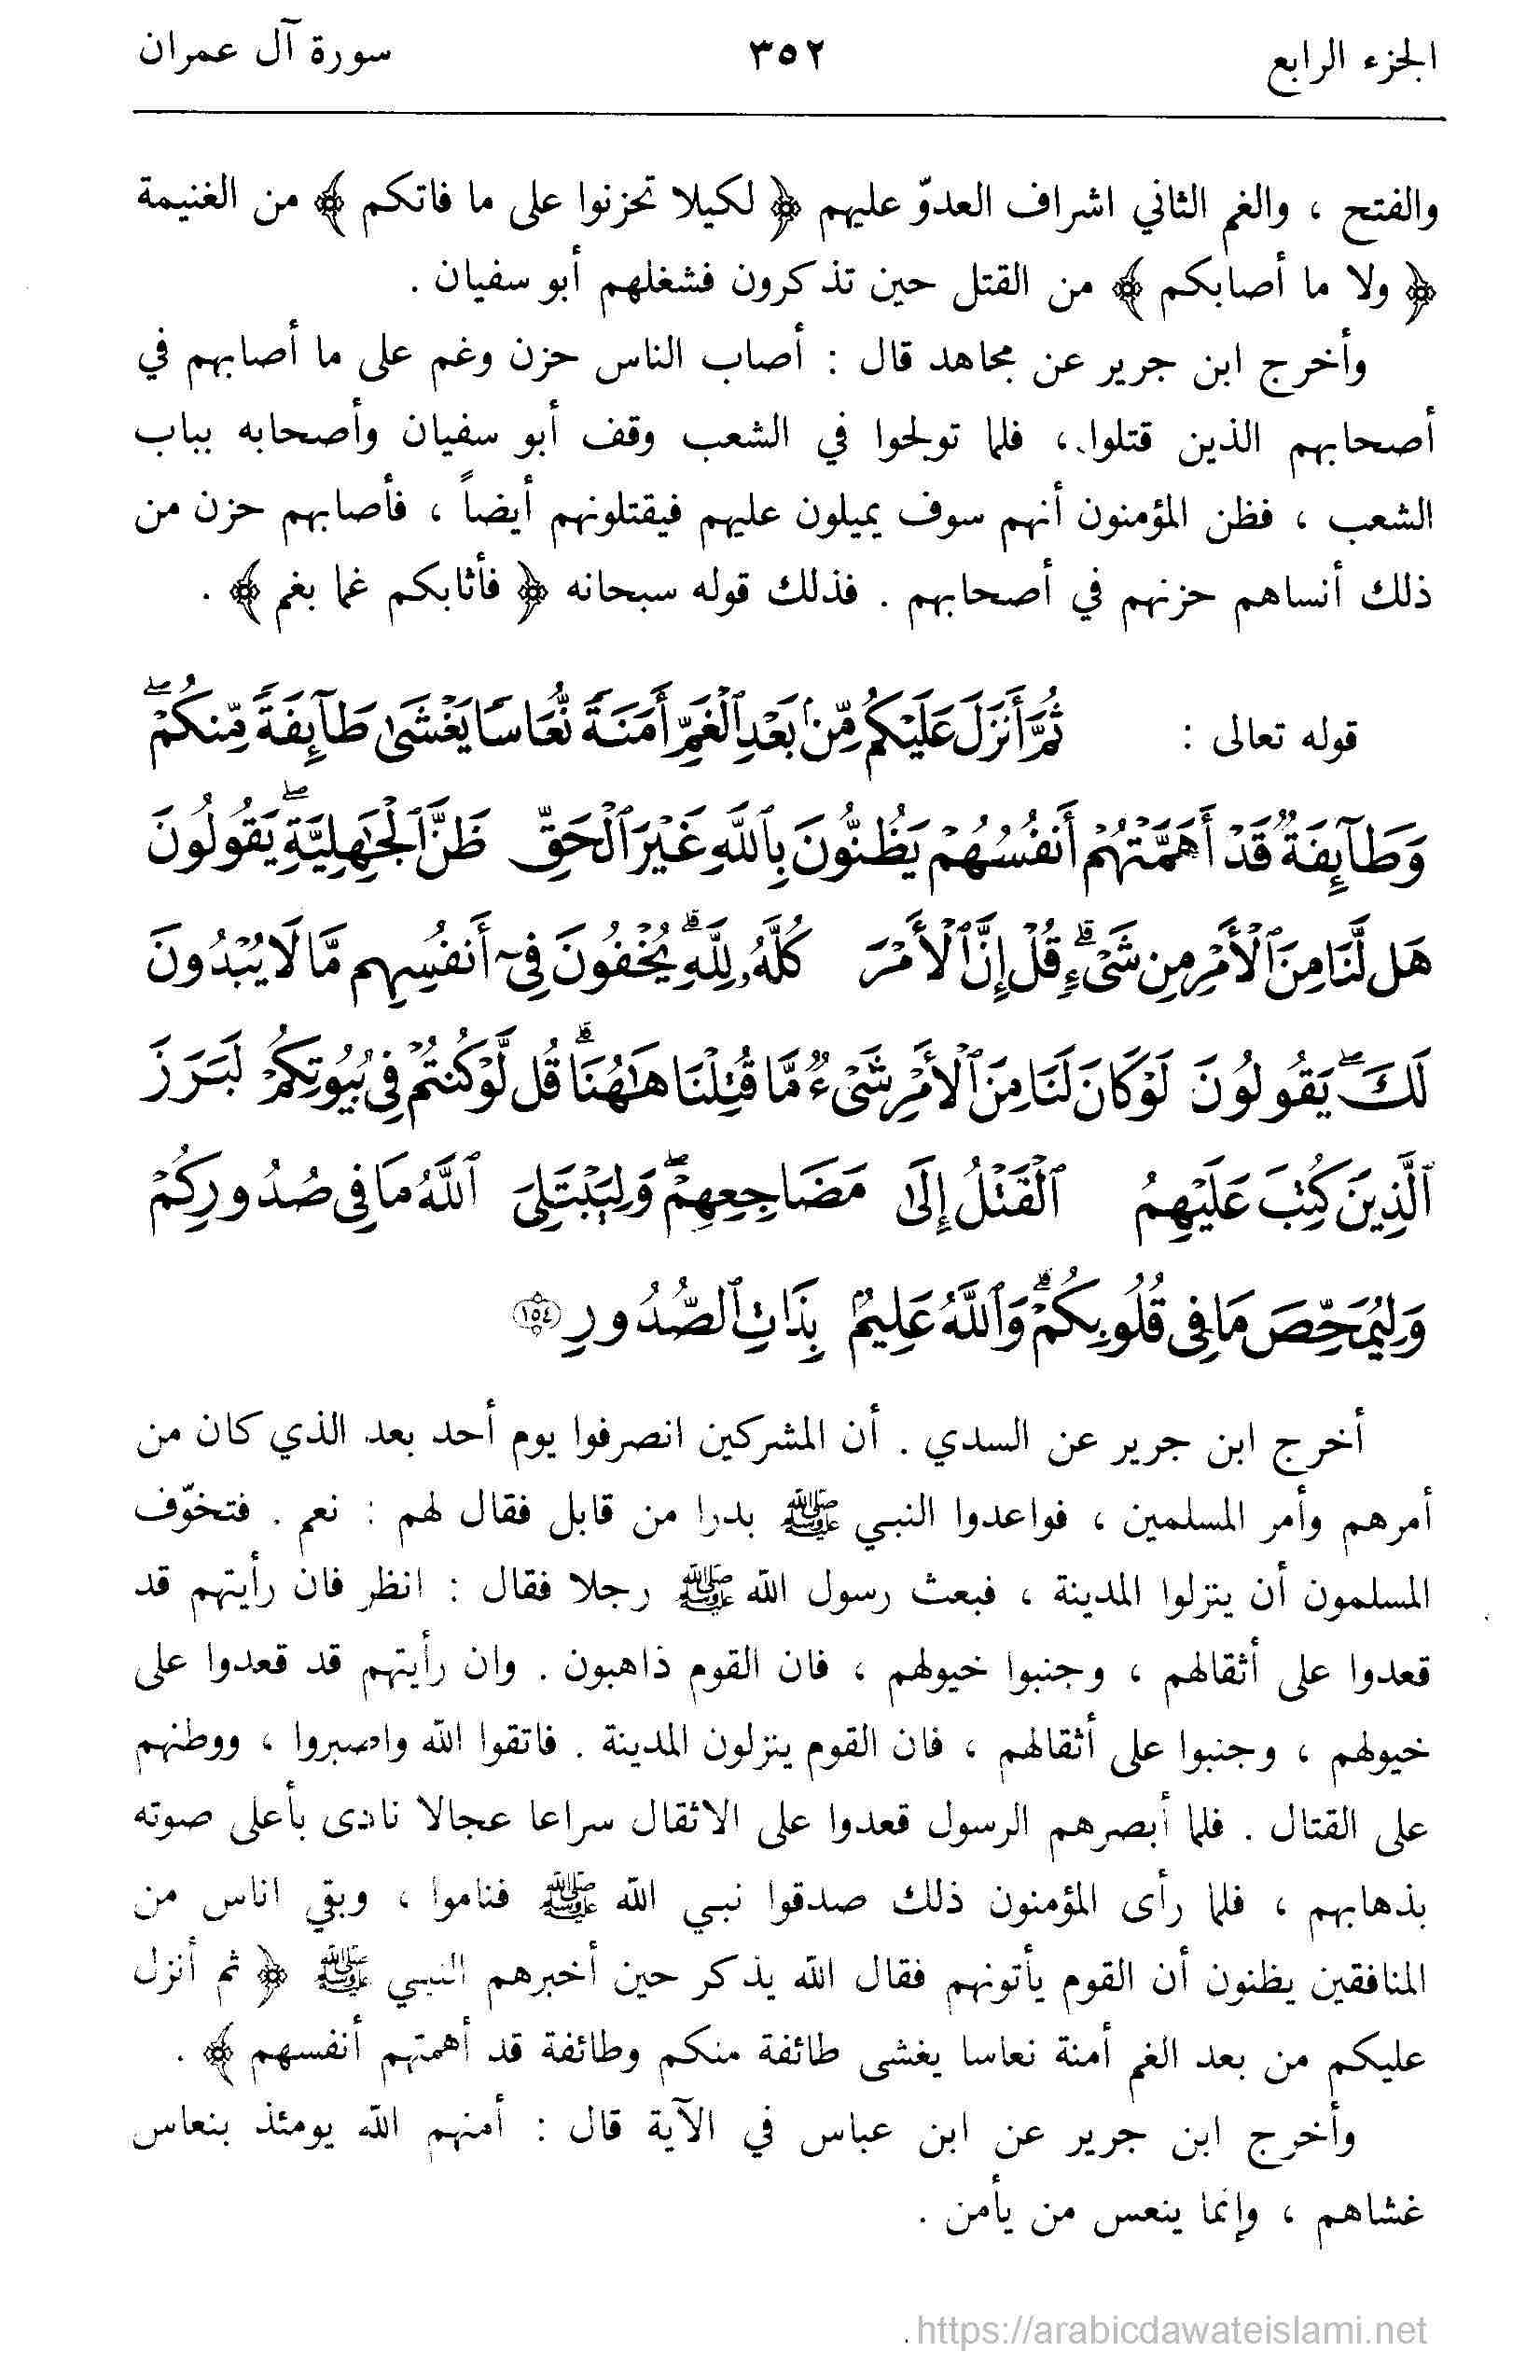 الجزء الرابع ٣٥٢ سورة آل عمران
والفتح ، والغم الثاني اشراف العدوّ عليهم ﴿ لكيلا تحزنوا على ما فاتكم ﴾ من الغنيمة
﴿ ولا ما أصابكم ﴾ من القتل حين تذكرون فشغلهم أبو سفيان .
وأخرج ابن جرير عن مجاهد قال : أصاب الناس حزن وغم على ما أصابهم في
أصحابهم الذين قتلوا ، فلما تولجوا في الشعب وقف أبو سفيان وأصحابه بباب
الشعب ، فظن المؤمنون أنهم سوف يميلون عليهم فيقتلونهم أيضاً ، فأصابهم حزن من
ذلك أنساهم حزنهم في أصحابهم . فذلك قوله سبحانه ﴿ فأثابكم غما بغم ﴾ .
قوله تعالى : ثُمَّ أَنزَلَ عَلَيْكُم مِّنۢ بَعْدِ ٱلْغَمِّ أَمَنَةً نُّعَاسًا يَغْشَىٰ طَآئِفَةً مِّنكُمْ ۖ
وَطَآئِفَةٌ قَدْ أَهَمَّتْهُمْ أَنفُسُهُمْ يَظُنُّونَ بِٱللَّهِ غَيْرَ ٱلْحَقِّ ظَنَّ ٱلْجَٰهِلِيَّةِ ۖ يَقُولُونَ
هَل لَّنَا مِنَ ٱلْأَمْرِ مِن شَىْءٍ ۗ قُلْ إِنَّ ٱلْأَمْرَ كُلَّهُۥ لِلَّهِ ۗ يُخْفُونَ فِىٓ أَنفُسِهِم مَّا لَا يُبْدُونَ
لَكَ ۖ يَقُولُونَ لَوْ كَانَ لَنَا مِنَ ٱلْأَمْرِ شَىْءٌ مَّا قُتِلْنَا هَٰهُنَا ۗ قُل لَّوْ كُنتُمْ فِى بُيُوتِكُمْ لَبَرَزَ
ٱلَّذِينَ كُتِبَ عَلَيْهِمُ ٱلْقَتْلُ إِلَىٰ مَضَاجِعِهِمْ ۖ وَلِيَبْتَلِىَ ٱللَّهُ مَا فِى صُدُورِكُمْ
وَلِيُمَحِّصَ مَا فِى قُلُوبِكُمْ ۗ وَٱللَّهُ عَلِيمٌۢ بِذَاتِ ٱلصُّدُورِ ١٥٤
أخرج ابن جرير عن السدي . أن المشركين انصرفوا يوم أحد بعد الذي كان من
أمرهم وأمر المسلمين ، فواعدوا النبي ﷺ بدرا من قابل فقال لهم : نعم . فتخوّف
المسلمون أن ينزلوا المدينة ، فبعث رسول الله ﷺ رجلا فقال : انظر فان رأيتهم قد
قعدوا على أثقالهم ، وجنبوا خيولهم ، فان القوم ذاهبون . وان رأيتهم قد قعدوا على
خيولهم ، وجنبوا على أثقالهم ، فان القوم ينزلون المدينة . فاتقوا الله واصبروا ، ووطنهم
على القتال . فلما أبصرهم الرسول قعدوا على الاثقال سراعا عجالا نادى بأعلى صوته
بذهابهم ، فلما رأى المؤمنون ذلك صدقوا نبي الله ﷺ فناموا ، وبقي اناس من
المنافقين يظنون أن القوم يأتونهم فقال الله يذكر حين أخبرهم النبي ﷺ ﴿ ثم أنزل
عليكم من بعد الغم أمنة نعاسا يغشى طائفة منكم وطائفة قد أهمتهم أنفسهم ﴾ .
وأخرج ابن جرير عن ابن عباس في الآية قال : أمنهم الله يومئذ بنعاس
غشاهم ، وإنما ينعس من يأمن .
https://arabicdawateislami.net